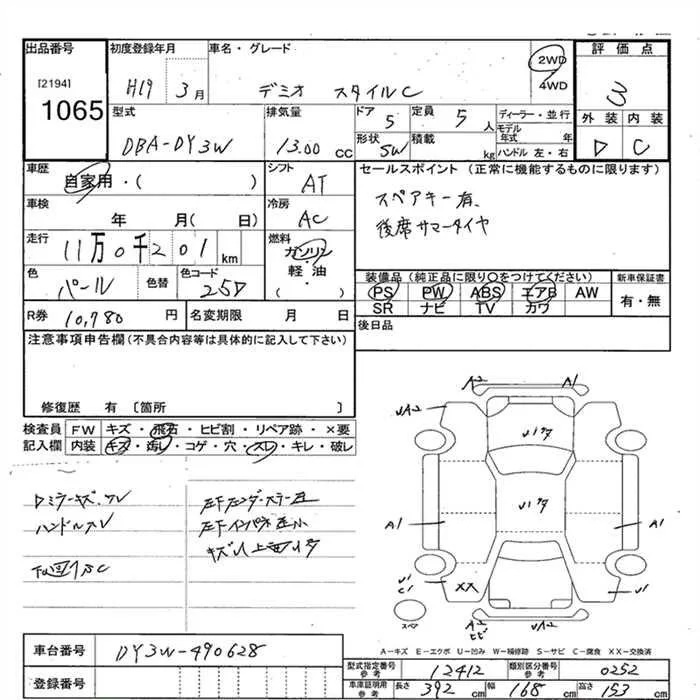 出品番号 初度登録年月 車名・グレード 2WD 4WD 評価点
[2194]
1065 H19 3月 デミオ スタイルC 3
型式 排気量 ドア 定員 ディーラー・並行 外装 内装
DBA-DY3W 13.00 CC 5 5人 モデル年式 年 D C
形状 SW 積載 kg ハンドル 左・右
車歴 シフト セールスポイント (正常に機能するものに限ります)
自家用・( ) AT スペアキー有、
車検 冷房 後席サマータイヤ
年 月( 日) AC
走行 燃料
11万0千201km ガソリン・軽油・( )
色 色替 色コード 装備品 (純正品に限り○をつけてください) 新車保証書
パール 25D PS PW ABS エアB AW 有・無
SR ナビ TV カワ
R券 10,780 円 名変期限 月 日 後日品
注意事項申告欄 (不具合内容等は具体的に記入して下さい)
修復歴 有 〔箇所 〕
検査員 FW キズ・飛石・ヒビ割・リペア跡・×要
記入欄 内装 キズ・汚レ・コゲ・穴・スレ・キレ・破レ
Dミラーキズ、スレ
ハンドルスレ
A2 A1
UA2
A1 A1
U1 C1 XX U1
スペア A2 ヒビ UA2
A=キズ E=エクボ U=凹み W=補修跡 S=サビ C=腐食 XX=交換済
車台番号 DY3W-490628
登録番号
型式指定番号 参考 12412 類別区分番号 参考 0252
車庫証明用 参考 長さ 392 cm 幅 168 cm 高さ 153 cm